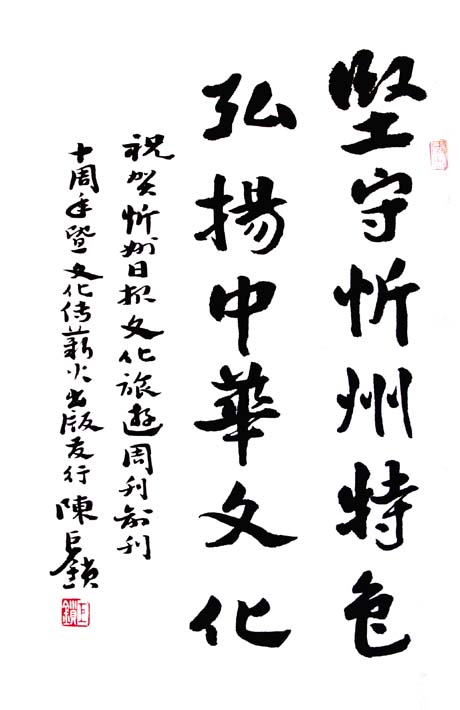 堅守忻州特色
弘揚中華文化
祝贺忻州日报文化旅遊周刊創刊
十周年暨文化传薪火出版发行陳巨鎖
巨鎖